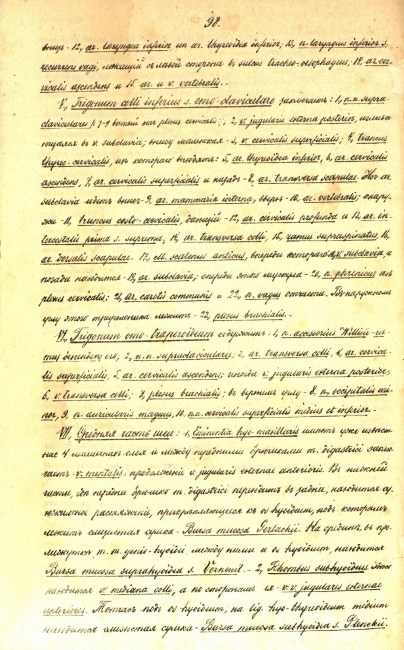 98.
вниз - 12, ar. laryngea inferior из ar. thyreoidea inferior; 13, n. laryngeus inferior s.
recurrens vagi, лежащий съ лѣвой стороны въ sulcus tracheo-oesophageus; 14, ar. cer-
vicalis ascendens и 15. ar. и v. vertebralis. -
V, Trigonum colli inferius s. omo-claviculare заключаетъ: 1, n.n. supra-
claviculares plexus cervicalis; 2, v. jugularis externa posterior,
въ v. subclavia; 3, v. cervicalis superficialis; 4, truncus
thyreo-cervicalis, изъ котораго выходятъ: 5, ar. thyreoidea inferior, 6, ar. cervicalis
ascendens, 7, ar. cervicalis superficialis и 8, ar. transversa scapulae.
subclavia идетъ внизъ - 9, ar. mammaria interna, вверхъ - 10, ar. vertebralis;
11, truncus costo-cervicalis, дающій - 12, ar. cervicalis profunda и 13, ar. in-
tercostalis prima s. suprema, 14, ar. transversa colli, 15, ramus supraspinatus, 16,
ar. dorsalis scapulae. 17, m. scalenus anticus, впереди котораго v. subclavia и
позади находится - 19, ar. subclavia; спереди этой мускула - 20, n. phrenicus изъ
plexus cervicalis; 21, ar. carotis communis и 22, n. vagus отчасти. Въ наружномъ
углу этого треугольника лежитъ - 23, plexus brachialis. -
VI, Trigonum omo-trapezoideum содержитъ: 1, n. accessorius Willisii
2, n.n. supraclaviculares; 3, ar. transversa colli, 4, ar. cervica-
lis superficialis, 5, ar. cervicalis ascendens; v. jugularis externa posterior,
6, v. transversa colli; 7, plexus brachialis; въ верхнемъ углу - 8, n. occipitalis mi-
nor, 9, n. auricularis magnus, 10, n.n. cervicalis superficialis medius et inferior. -
VII, Средняя часть шеи: 1, Eminentia hyo-maxillaris имѣетъ уже
4 слоя и между передними брюшками m. digastrici
v. mentalis - продолженіе v. jugularis externae anterioris. Въ нижней
части, гдѣ переднее брюшко m. digastrici переходитъ въ заднее, находится су-
хожильное растяженіе, прикрѣпляющееся къ os hyoideum, подъ которымъ
лежитъ слизистая сумка - Bursa mucosa Gerlachii. На срединѣ, въ про-
межуткѣ m.m. genio-hyoidei между ними и os hyoideum, находится
Bursa mucosa suprahyoidea s. Verneuil. - 2, Rhombus subhyoideus.
находится v. mediana colli, а по сторонамъ ея - v.v. jugulares externae
anteriores. Тотчасъ подъ os hyoideum, на lig. hyo-thyreoideum medium
находится слизистая сумка - Bursa mucosa subhyoidea s.